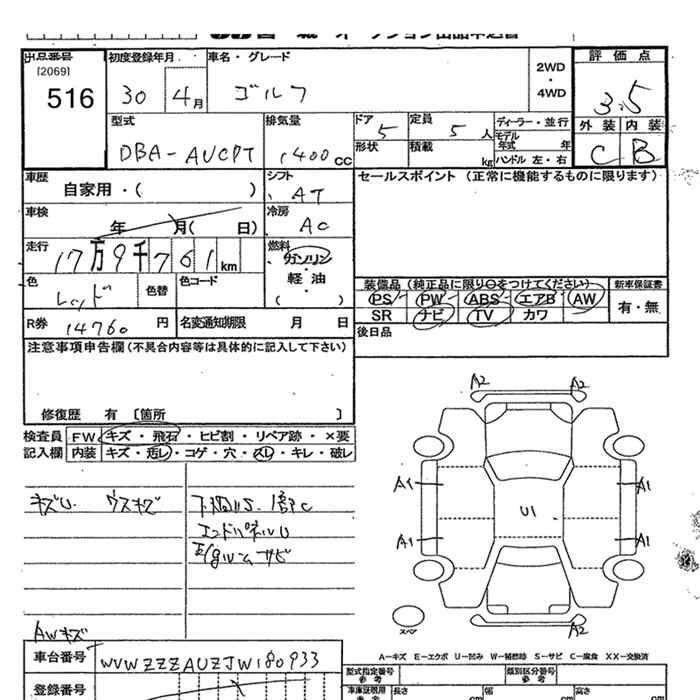 出品番号
[2069]
516
初度登録年月
30 4月
車名・グレード
ゴルフ
2WD
・
4WD
評価点
3.5
外装 内装
C B
型式
DBA-AUCPT
排気量
1400cc
ドア
5
定員
5人
形状
積載
kg
ディーラー・並行
モデル年式 年
ハンドル 左・右
車歴
自家用・( )
シフト
AT
セールスポイント (正常に機能するものに限ります)
車検
年 月( 日)
冷房
AC
走行
17万9千761km
燃料
ガソリン
・
軽・油
( )
色
レッド
色替
色コード
装備品(純正品に限り○をつけてください)
PS PW ABS エアB AW
SR ナビ TV カワ
新車保証書
有・無
R券 14760円
名変通知期限 月 日
後日品
注意事項申告欄(不具合内容等は具体的に記入して下さい)
修復歴 有 [箇所 ]
検査員
記入欄
FW キズ・飛石・ヒビ割・リペア跡・×要
内装 キズ・汚レ・コゲ・穴・スレ・キレ・破レ
キズU. ウスキズ
エンドパネルU
AWキズ
A2 A2
A1 A1
U1
A1 A1
A2 A2
スペア
A-キズ E-エクボ U-凹み W-補修跡 S-サビ C-腐食 XX-交換済
車台番号 WVWZZZAUZJW180933
登録番号
型式指定番号
参考
類別区分番号
参考
車庫証明用
参考
長さ cm
幅 cm
高さ cm